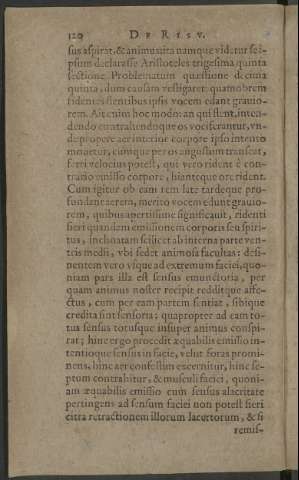 120 DE RISV.
sus aspirat, & animus ita namque videtur se i-
psum declarasse Aristoteles trigesima quinta
sectione Problematum quæstione decima
quinta, dum causam vestigaret: quamobrem
ridentes flentibus ipsis vocem edant grauio-
rem. Ait enim hoc modo: an qui flent, inten-
dendo contrahendoque os vociferantur, vn-
de propere aer interine corpore ipso intenso
mouetur, cumque per os angustum transeat,
ferri velocius potest, qui vero rident è con-
trario emisso corpore, hianteque ore rident.
Cum igitur ob eam rem late tardeque pro-
fundant aerem, merito vocem edunt grauio-
rem, quibus apertissime significauit, ridenti
fieri quandam emissionem corporis seu spiri-
tus, inchoatam scilicet ab interna parte ven-
tris medii, vbi sedet animosa facultas: desi-
nentem vero vsque ad extremum faciei, quo-
niam pars illa est sensus emunctoria, per
quam animus noster recipit redditque affe-
ctus, cum per eam partem sentiat, sibique
credita sint sensoria; quapropter ad eam to-
tus sensus totusque insuper animus conspi-
rat; hinc ergo procedit æquabilis emissio in-
tentioque sensus in facie, velut foras promi-
nens, hinc aer confestim excernitur, hinc se-
ptum contrahitur, & musculi faciei, quoni-
am æquabilis emissio cum sensus alacritate
pertingens ad sensum faciei non potest fieri
citra retractionem illorum lacertorum, & si
remis-